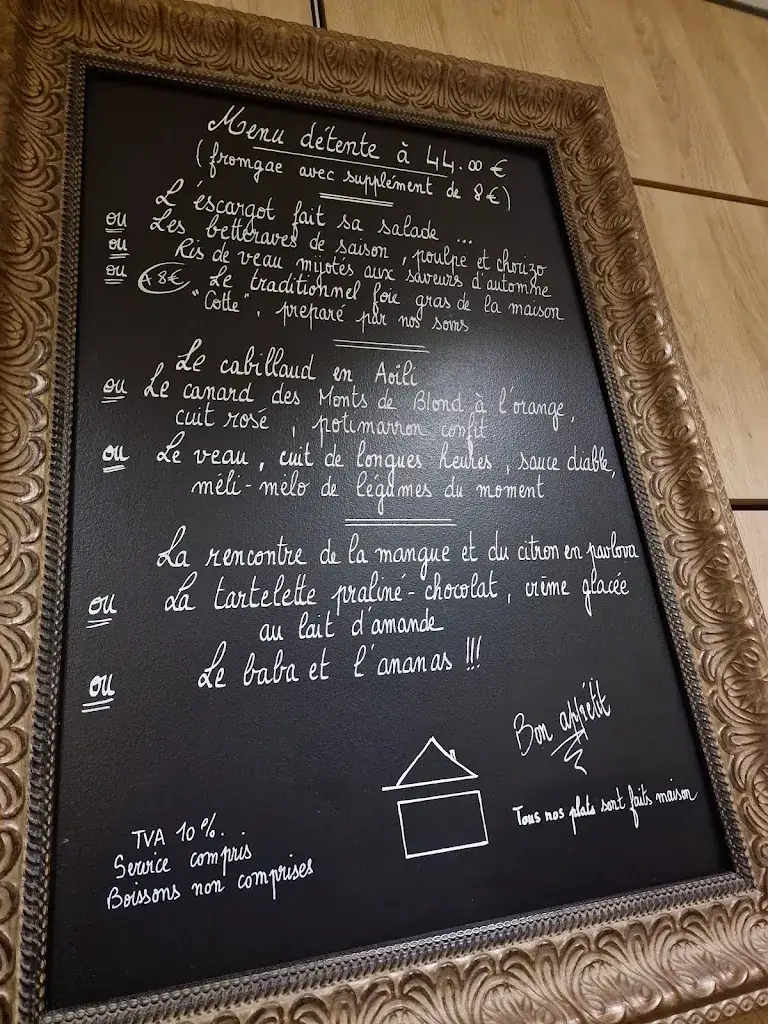 Menu détente à 44.00 €
(fromgae avec supplément de 8€)
L'éscargot fait sa salade ...
ou Les betteraves de saison, poulpe et chorizo
ou Ris de veau mijotés aux saveurs d'automne
ou +8€ Le traditionnel foie gras de la maison
"Cotte", preparé par nos soins
Le cabillaud en Aoili
ou Le canard des Monts de Blond à l'orange,
cuit rosé, potimarron confit
ou Le veau, cuit de longues heures, sauce diable,
méli-mélo de légumes du moment
La rencontre de la mangue et du citron en pavlova
ou La tartelette praliné-chocolat, crème glacée
au lait d'amande
ou Le baba et l'ananas !!!
Bon appétit
Tous nos plats sont faits maison
TVA 10%.
Service compris
Boissons non comprises